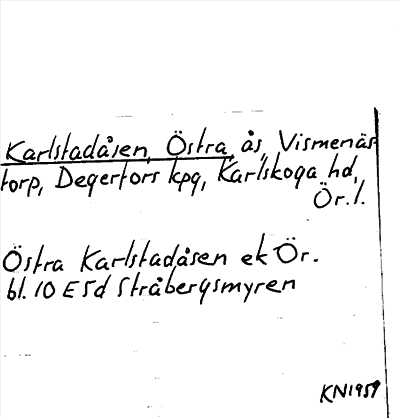 Karlstadåsen, Östra, ås, Vismenäs
torp, Degerfors kpg, Karlskoga hd,
Ör. l.
Östra Karlstadåsen ek Ör.
bl. 10 E 5d Stråbergsmyren
KN1959